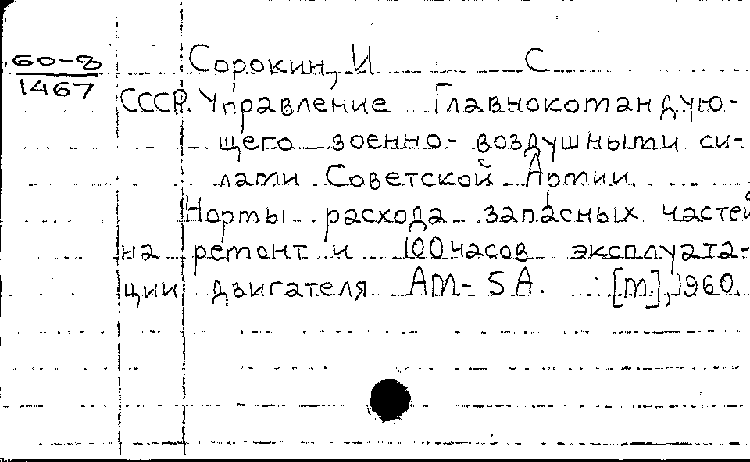 60-8
1467
Сорокин, И С
СССР. Управление Главнокомандую-
щего военно-воздушными си-
лами Советской Армии
Нормы расхода запасных частей
на ремонт и 100 часов эксплуата-
ции двигателя АМ-5А. [М.], 1960.